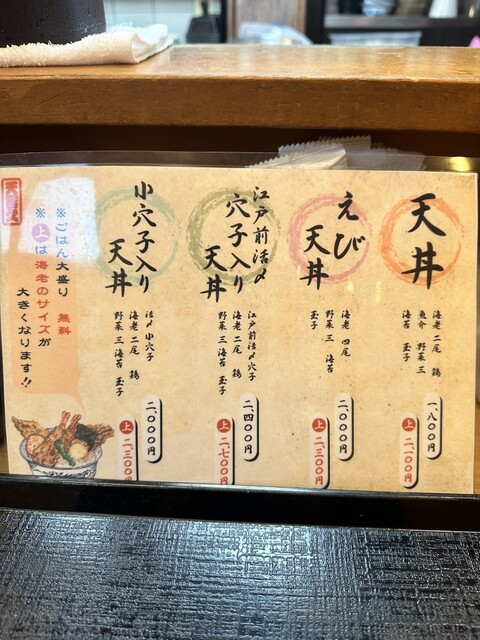 天丼
海老 二尾 鶏
魚介 野菜 三
海苔 玉子
一、八〇〇円
上 二、一〇〇円
えび
天丼
海老 四尾
野菜 三 海苔
玉子
二、〇〇〇円
上 二、三〇〇円
江戸前活〆
穴子入り
天丼
江戸前活〆穴子
海老 二尾 鶏
野菜 三 海苔 玉子
二、四〇〇円
上 二、七〇〇円
小穴子入り
天丼
活〆小穴子
海老 二尾 鶏
野菜 三 海苔 玉子
二、〇〇〇円
上 二、三〇〇円
※ごはん大盛り 無料
※上は海老のサイズが
大きくなります!!